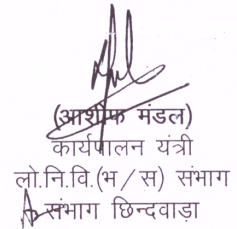 (आशीफ मंडल)
कार्यपालन यंत्री
लो.नि.वि.(भ/स) संभाग
संभाग छिन्दवाड़ा